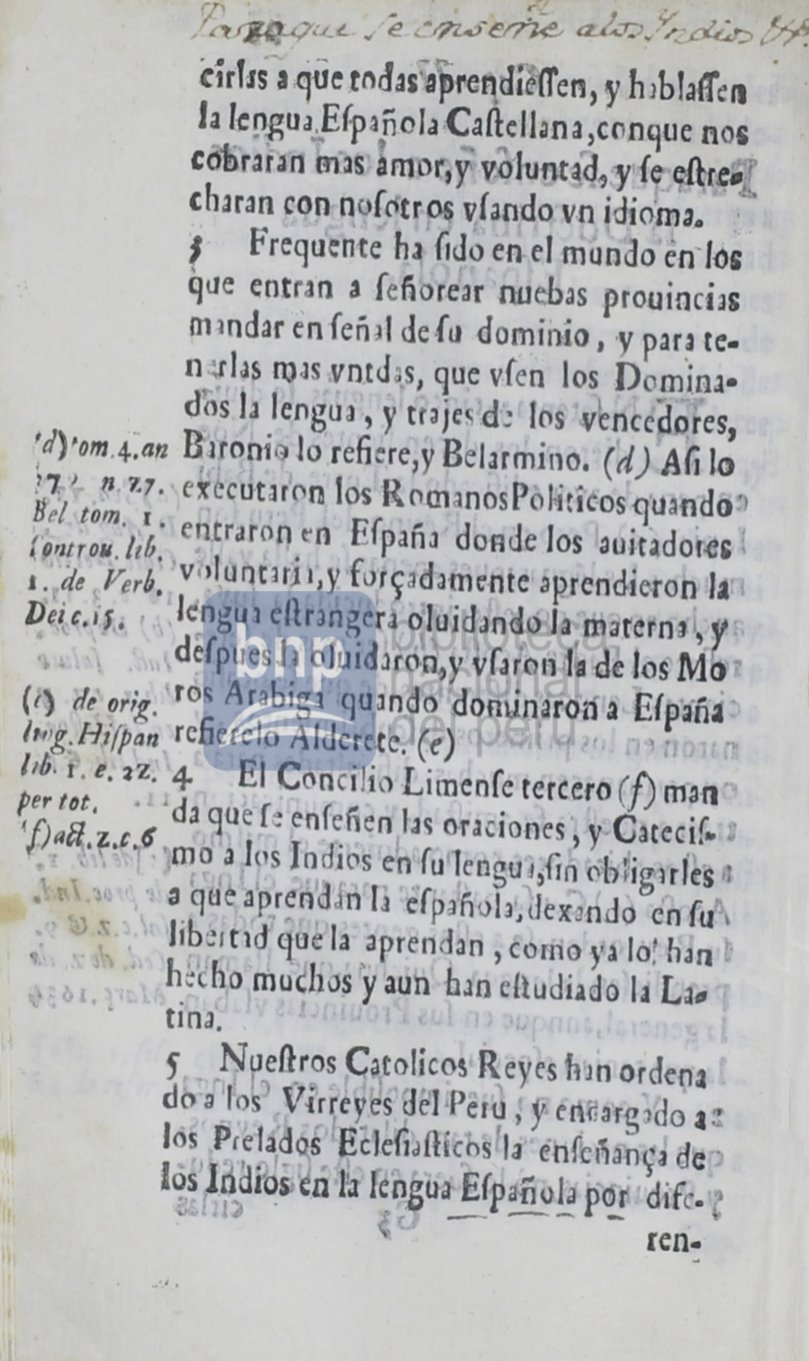 Para que se enseñe a los Indios
cirlas a que todas aprendieſſen, y hablaſſen
la lengua Eſpañola Caſtellana, conque nos
cobraran mas amor, y voluntad, y ſe eſtre-
charan con noſotros vſando vn idioma.
3 Frequente ha ſido en el mundo en los
que entran a ſeñorear nuebas prouincias
mandar en ſeñal de ſu dominio, y para te-
nerlas mas vnidas, que vſen los Domina-
dos la lengua, y trajes de los vencedores,
Baronio lo refiere, y Belarmino. (d) Aſi lo
executaron los Romanos Politicos quando
entraron en Eſpaña donde los auitadores
voluntaria, y forçadamente aprendieron la
lengua eſtrangera oluidando la materna, y
deſpues la oluidaron, y vſaron la de los Mo
ros Arabiga quando dominaron a Eſpaña
refierelo Alderete. (e)
4 El Concilio Limenſe tercero (f) man
da que ſe enſeñen las oraciones, y Cateciſ-
mo a los Indios en ſu lengua, ſin obligarles
a que aprendan la eſpañola, dexando en ſu
libertad que la aprendan, como ya lo han
hecho muchos y aun han eſtudiado la La-
tina.
5 Nueſtros Catolicos Reyes han ordena
do a los Virreyes del Peru, y encargado a
los Prelados Ecleſiaſticos la enſeñança de
los Indios en la lengua Eſpañola por dife-
ren-
(d) tom. 4. an
n. 27.
Bel tom. 1.
Controu. lib.
1. de Verb.
Dei c. 15.
(e) de orig.
ling. Hiſpan
lib. 1. e. 22.
per tot.
(f) act. 2. c. 6
bnp
biblioteca
nacional
del perú